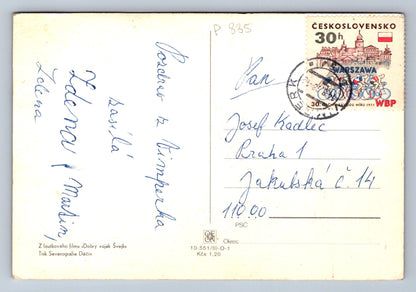 P 885
ČESKOSLOVENSKO
30h
WARSZAWA
WBP
Pozdrav z Vimperka
zasílá
Zdena, Martin,
Zdena
Pan
Josef Kadlec
Praha 1
Jakubská č. 14
11000
PSČ
Z loutkového filmu »Dobrý voják Švejk«
Tisk Severografie Děčín
Orbis
Kčs 1,20